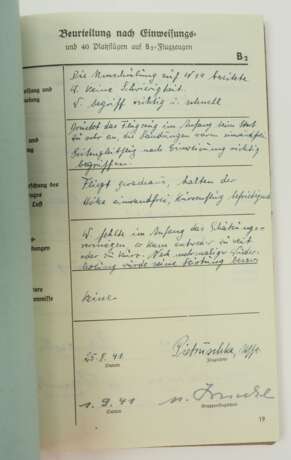 Beurteilung nach Einweisungs-
und 40 Platzflügen auf B₂-Flugzeugen
B₂
Die Umschulung auf W 34 bereitete
W. keine Schwierigkeit.
W. begriff richtig und schnell
Drückt das Flugzeug im Anfang beim Start
zu sehr an, die Landungen waren einwandfrei
nach Einweisung richtig
begriffen.
Fliegt geradeaus, halten der
Höhe einwandfrei, Kurvenflug befriedigend
W. fehlte im Anfang das Schätzungs-
vermögen, er kam entweder zu weit
oder zu kurz. Nach mehrmaliger Wieder-
holung wurde seine Leistung besser
keine
25.8.41
Datum
Fluglehrer
1.9.41
Datum
Gruppenfluglehrer
19